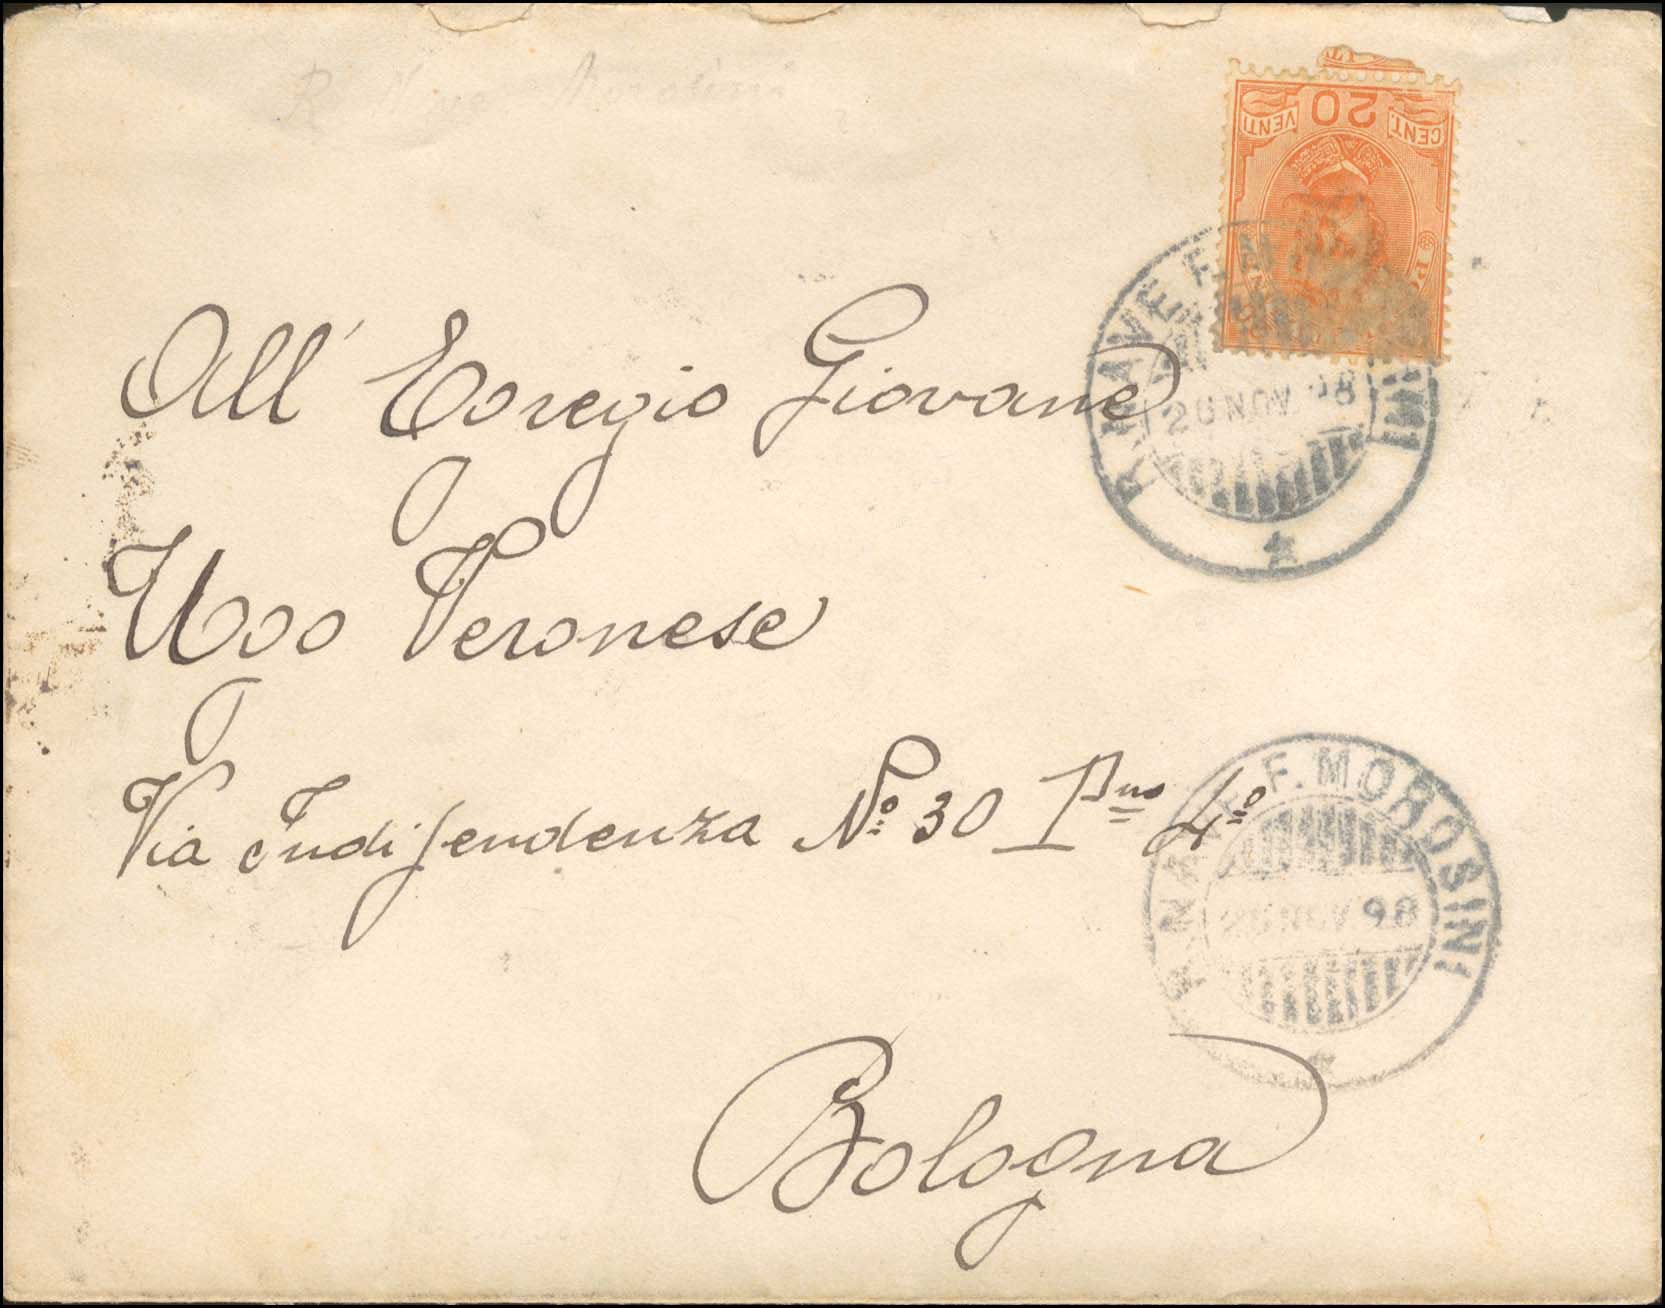 R. Nave Morosini
20
CENT. VENTI
R. NAVE F. M INI
20 NOV. 98
All' Egregio Giovane
Ugo Veronese
Via Indipendenza Nº 30 Pno 4º
R. NAVE F. MOROSINI
20 NOV 98
Bologna